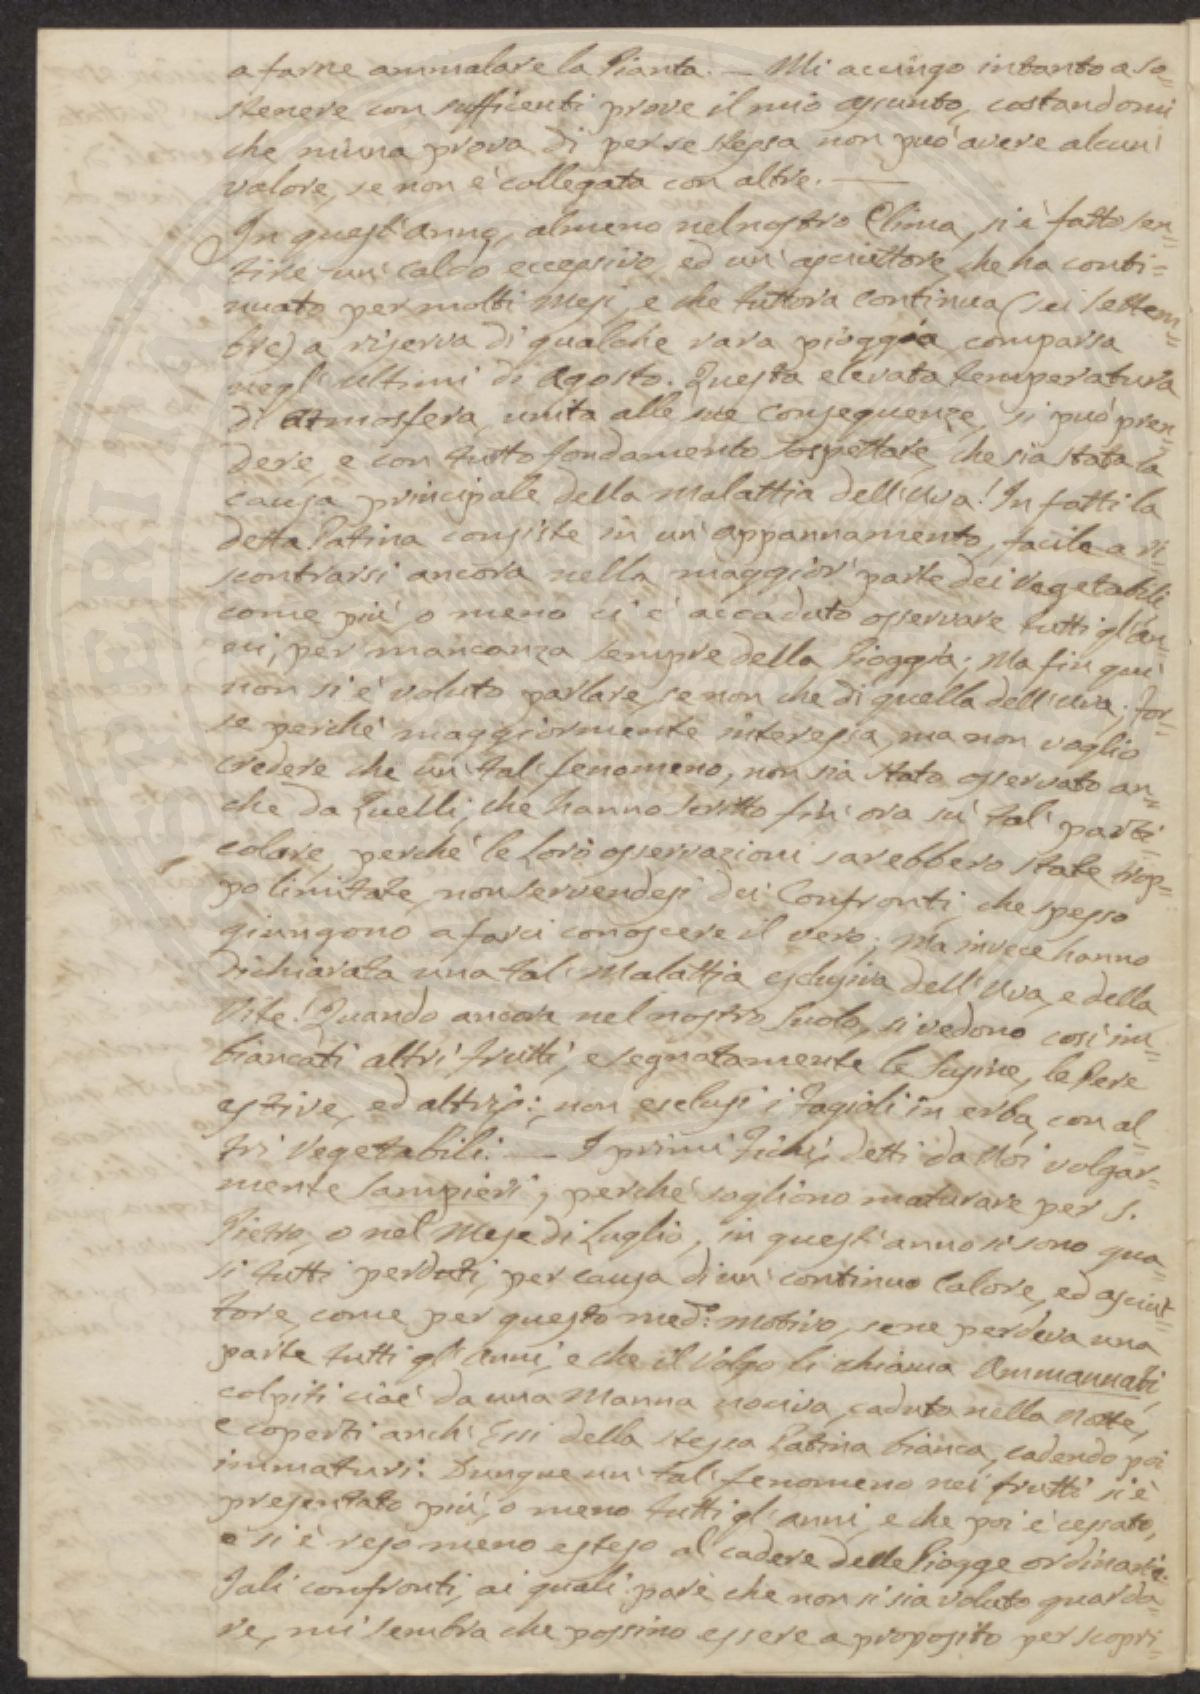 a farne ammalare la Pianta. — Mi accingo intanto a so=
stenere con sufficenti prove il mio assunto, costandomi
che niuna prova di per se stessa non può avere alcun
valore, se non è collegata con altre. —
In quest'anno, almeno nel nostro Clima, si è fatto sen=
tire un' caldo eccessivo, ed un' asciuttore, che ha conti=
nuato per molti Mesi, e che tuttora continua (sei Settem=
bre) a riserva di qualche rara pioggia comparsa
negl' ultimi di Agosto. Questa elevata temperatura
di Atmosfera, unita alle sue conseguenze, si può pren=
dere, e con tutto fondamento sospettare, che sia stata la
causa principale della Malattia dell'Uva! In fatti la
detta Patina consiste in un' appannamento, facile a ri
scontrarsi ancora nella maggior' parte dei Vegetabili
come più, o meno ci è accaduto osservare tutti gl'an=
ni, per mancanza sempre della Pioggia; Ma fin quì
non si è voluto parlare, se non che di quella dell'Uva, for=
se perchè maggiormente interessa, ma non voglio
credere che un' tal' fenomeno, non sia stato osservato an=
che da Quelli, che hanno scritto fin' ora sù tal' parti=
colare, perchè le Loro osservazioni sarebbero state trop=
po limitate, non servendosi dei Confronti, che spesso
giungono a farci conoscere il vero; Ma invece hanno
dichiarata una tal' Malattia esclusiva dell'Uva, e della
Vite! Quando ancora nel nostro Suolo, si vedono così im=
biancati altri frutti, e segnatamente le Susine, le Pere
estive, ed altri; non esclusi i fagioli in erba, con al=
tri Vegetabili. — I primi Fichi, detti da Noi volgar=
mente Sampieri, perchè sogliono maturare per S.
Pietro, o nel Mese di Luglio, in quest'anno si sono qua=
si tutti perduti, per causa di un' continuo Calore, ed asciut=
tore, come per questo med:o motivo, se ne perdeva una
parte tutti gl' Anni, e che il Volgo li chiama Ammannati,
colpiti cioè da una Manna nociva, caduta nella Notte,
e coperti anch' Essi della stessa Patina bianca, cadendo poi
immaturi: Dunque un' tal' fenomeno nei frutti si è
presentato più, o meno tutti gl' anni, e che poi è cessato,
o si è reso meno esteso al cadere delle Piogge ordinarie.
Tali confronti, ai quali pare che non si sia voluto guarda=
re, mi sembra che possino essere a proposito per scopri=